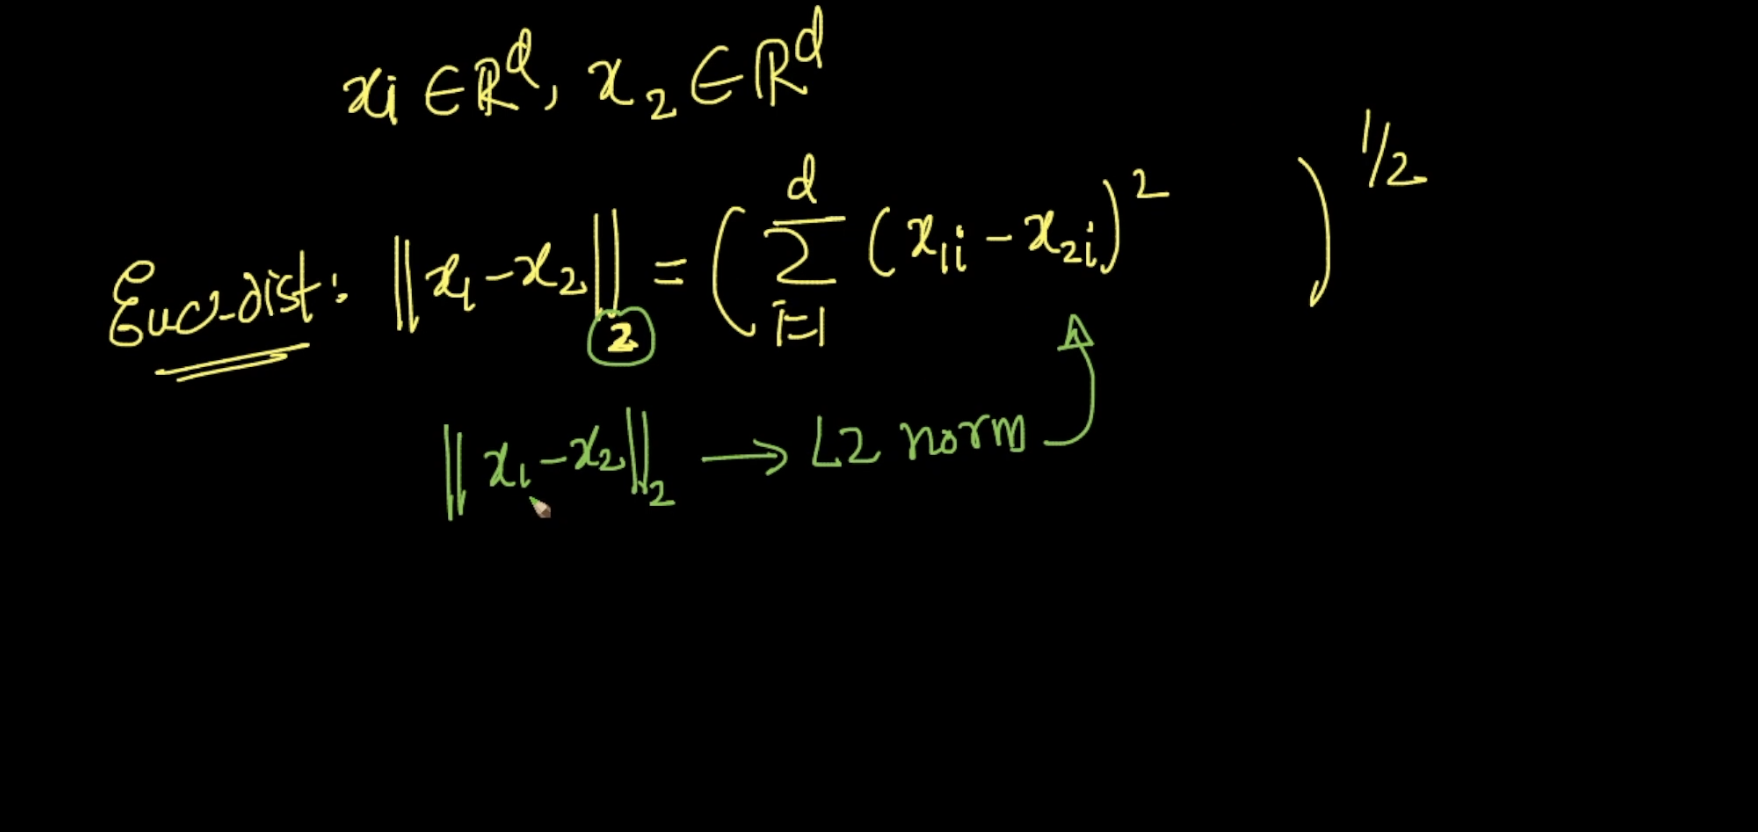 x₁ ∈ ℝᵈ, x₂ ∈ ℝᵈ
Euc-dist: ||x₁ - x₂||₂ = ( Σᵢ₌₁ᵈ (x₁ᵢ - x₂ᵢ)² )^1/2
||x₁ - x₂||₂ → L2 norm